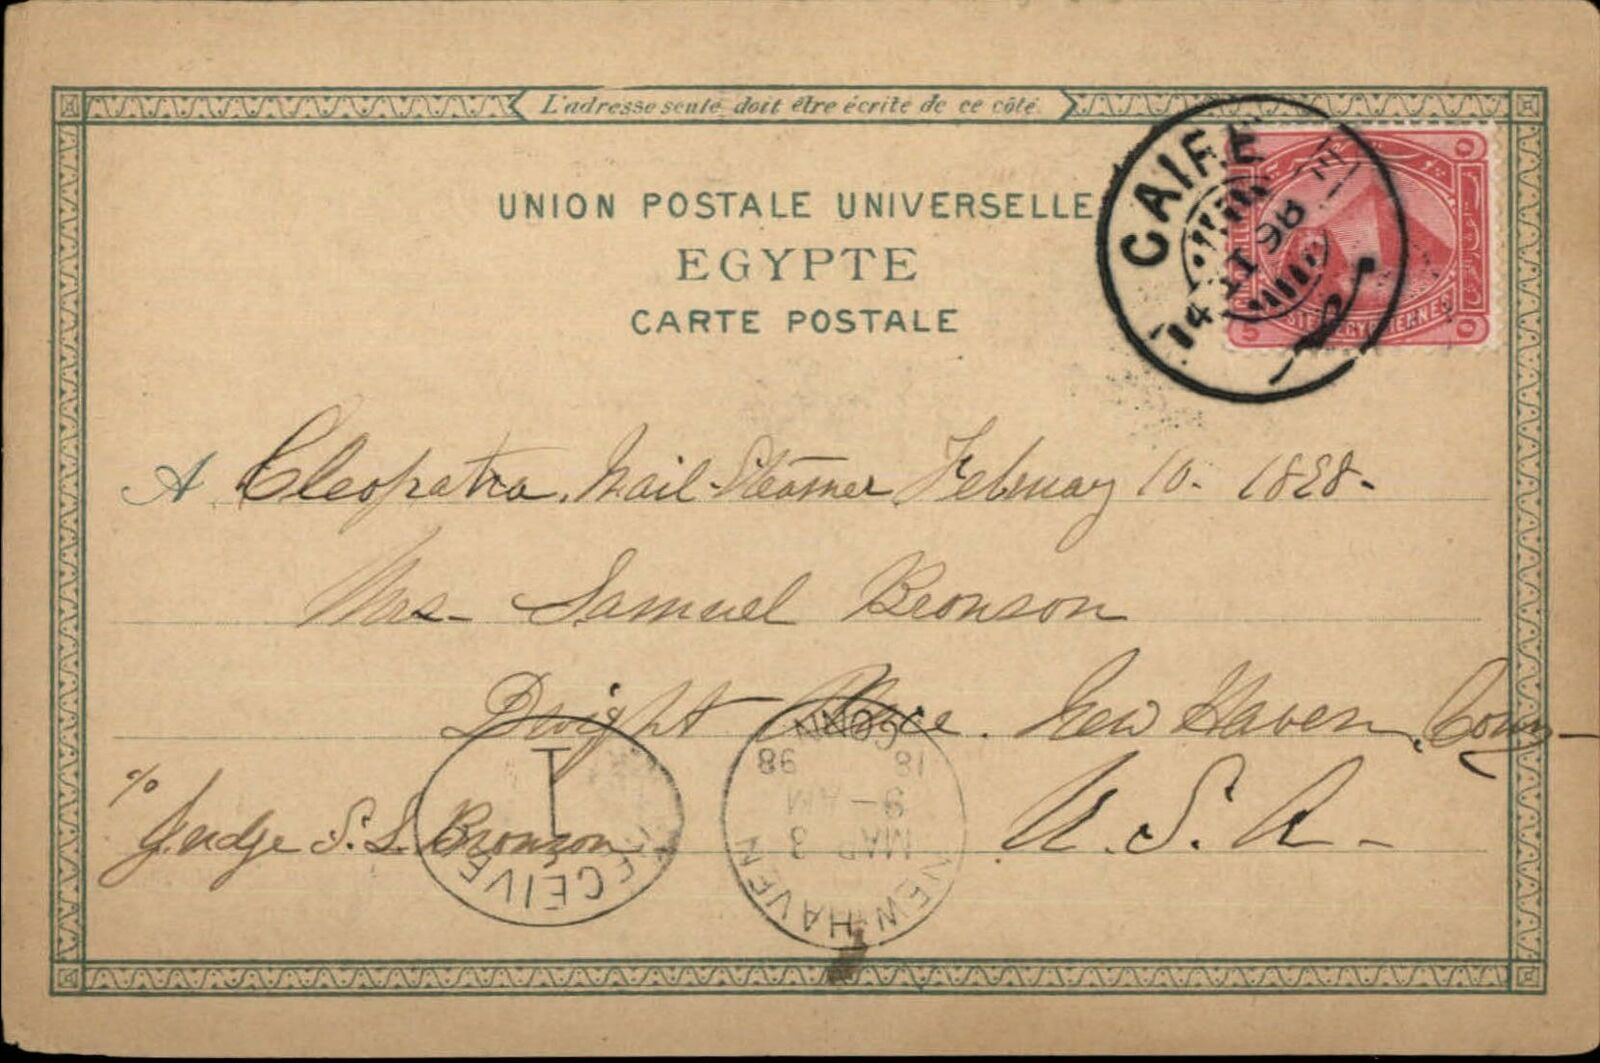 L'adresse seule doit être écrite de ce côté.
UNION POSTALE UNIVERSELLE
EGYPTE
CARTE POSTALE
CAIRE
14 II 98
POSTES EGYPTIENNES
5
A Cleopatra, Mail Steamer February 10 - 1898 -
Mrs - Samuel Bronson
Dwight Place. New Haven, Conn -
U. S. A -
c/o
Judge S. L. Bronson
RECEIVED
1
NEW HAVEN
CONN
MAR 3
9 - AM
18 98